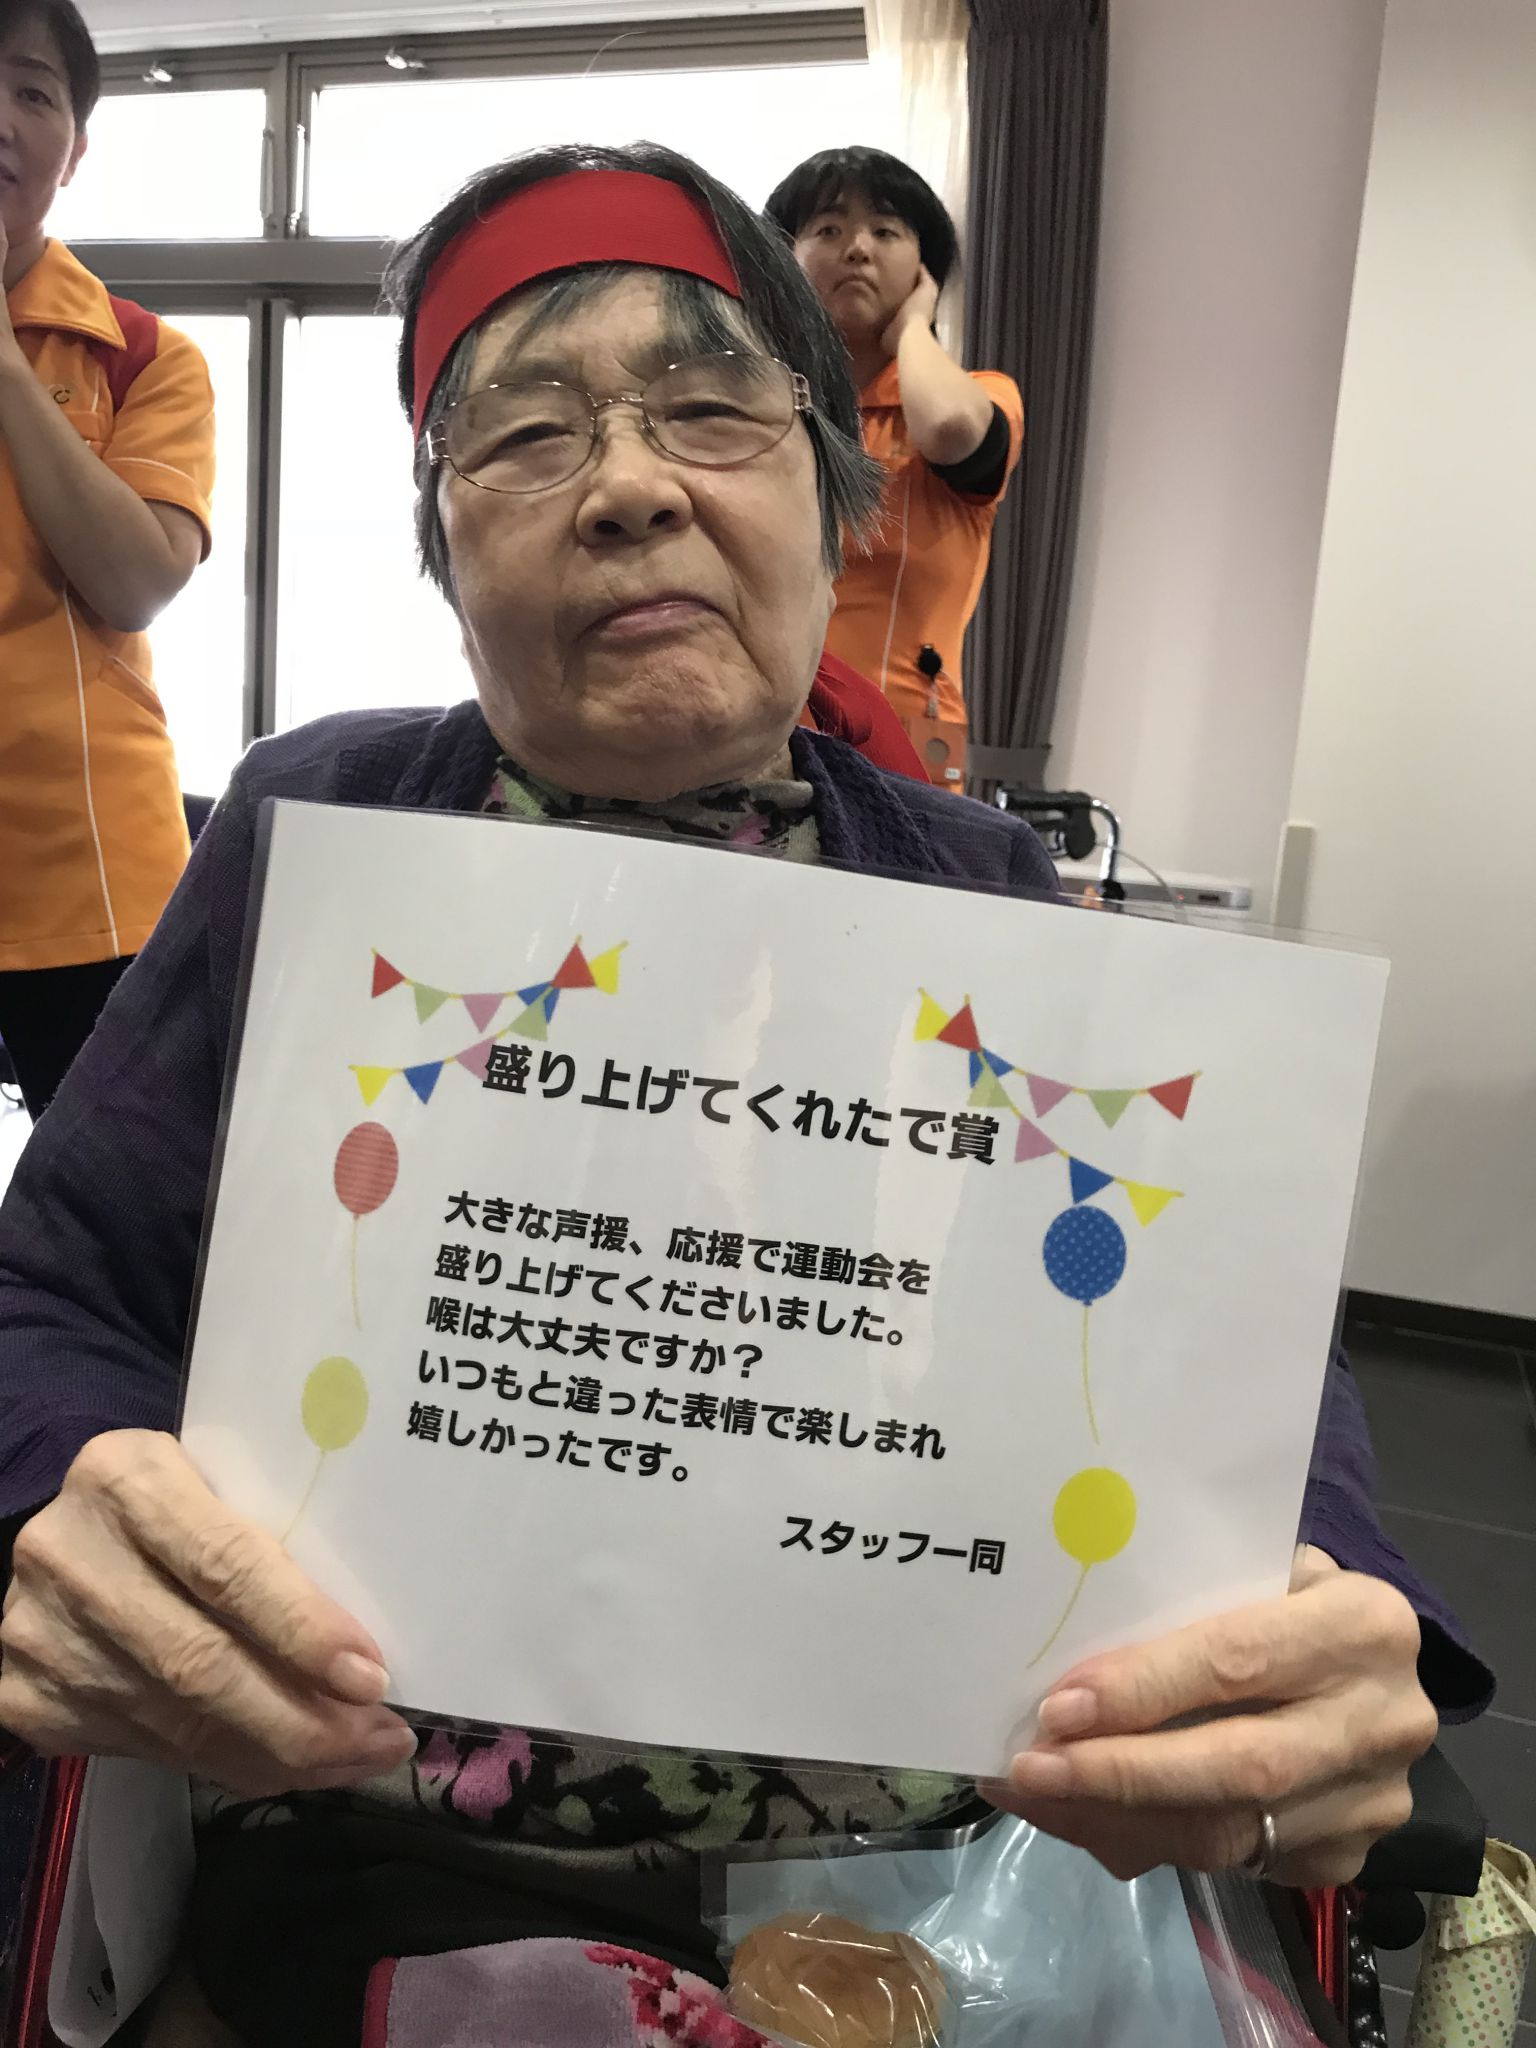 盛り上げてくれたで賞
大きな声援、応援で運動会を
盛り上げてくださいました。
喉は大丈夫ですか？
いつもと違った表情で楽しまれ
嬉しかったです。
スタッフ一同